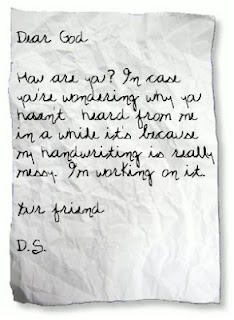 Dear God
How are ya? In case
you're wondering why ya
hasn't heard from me
in a while it's because
my handwriting is really
messy. I'm working on it.
Your friend
D.S.